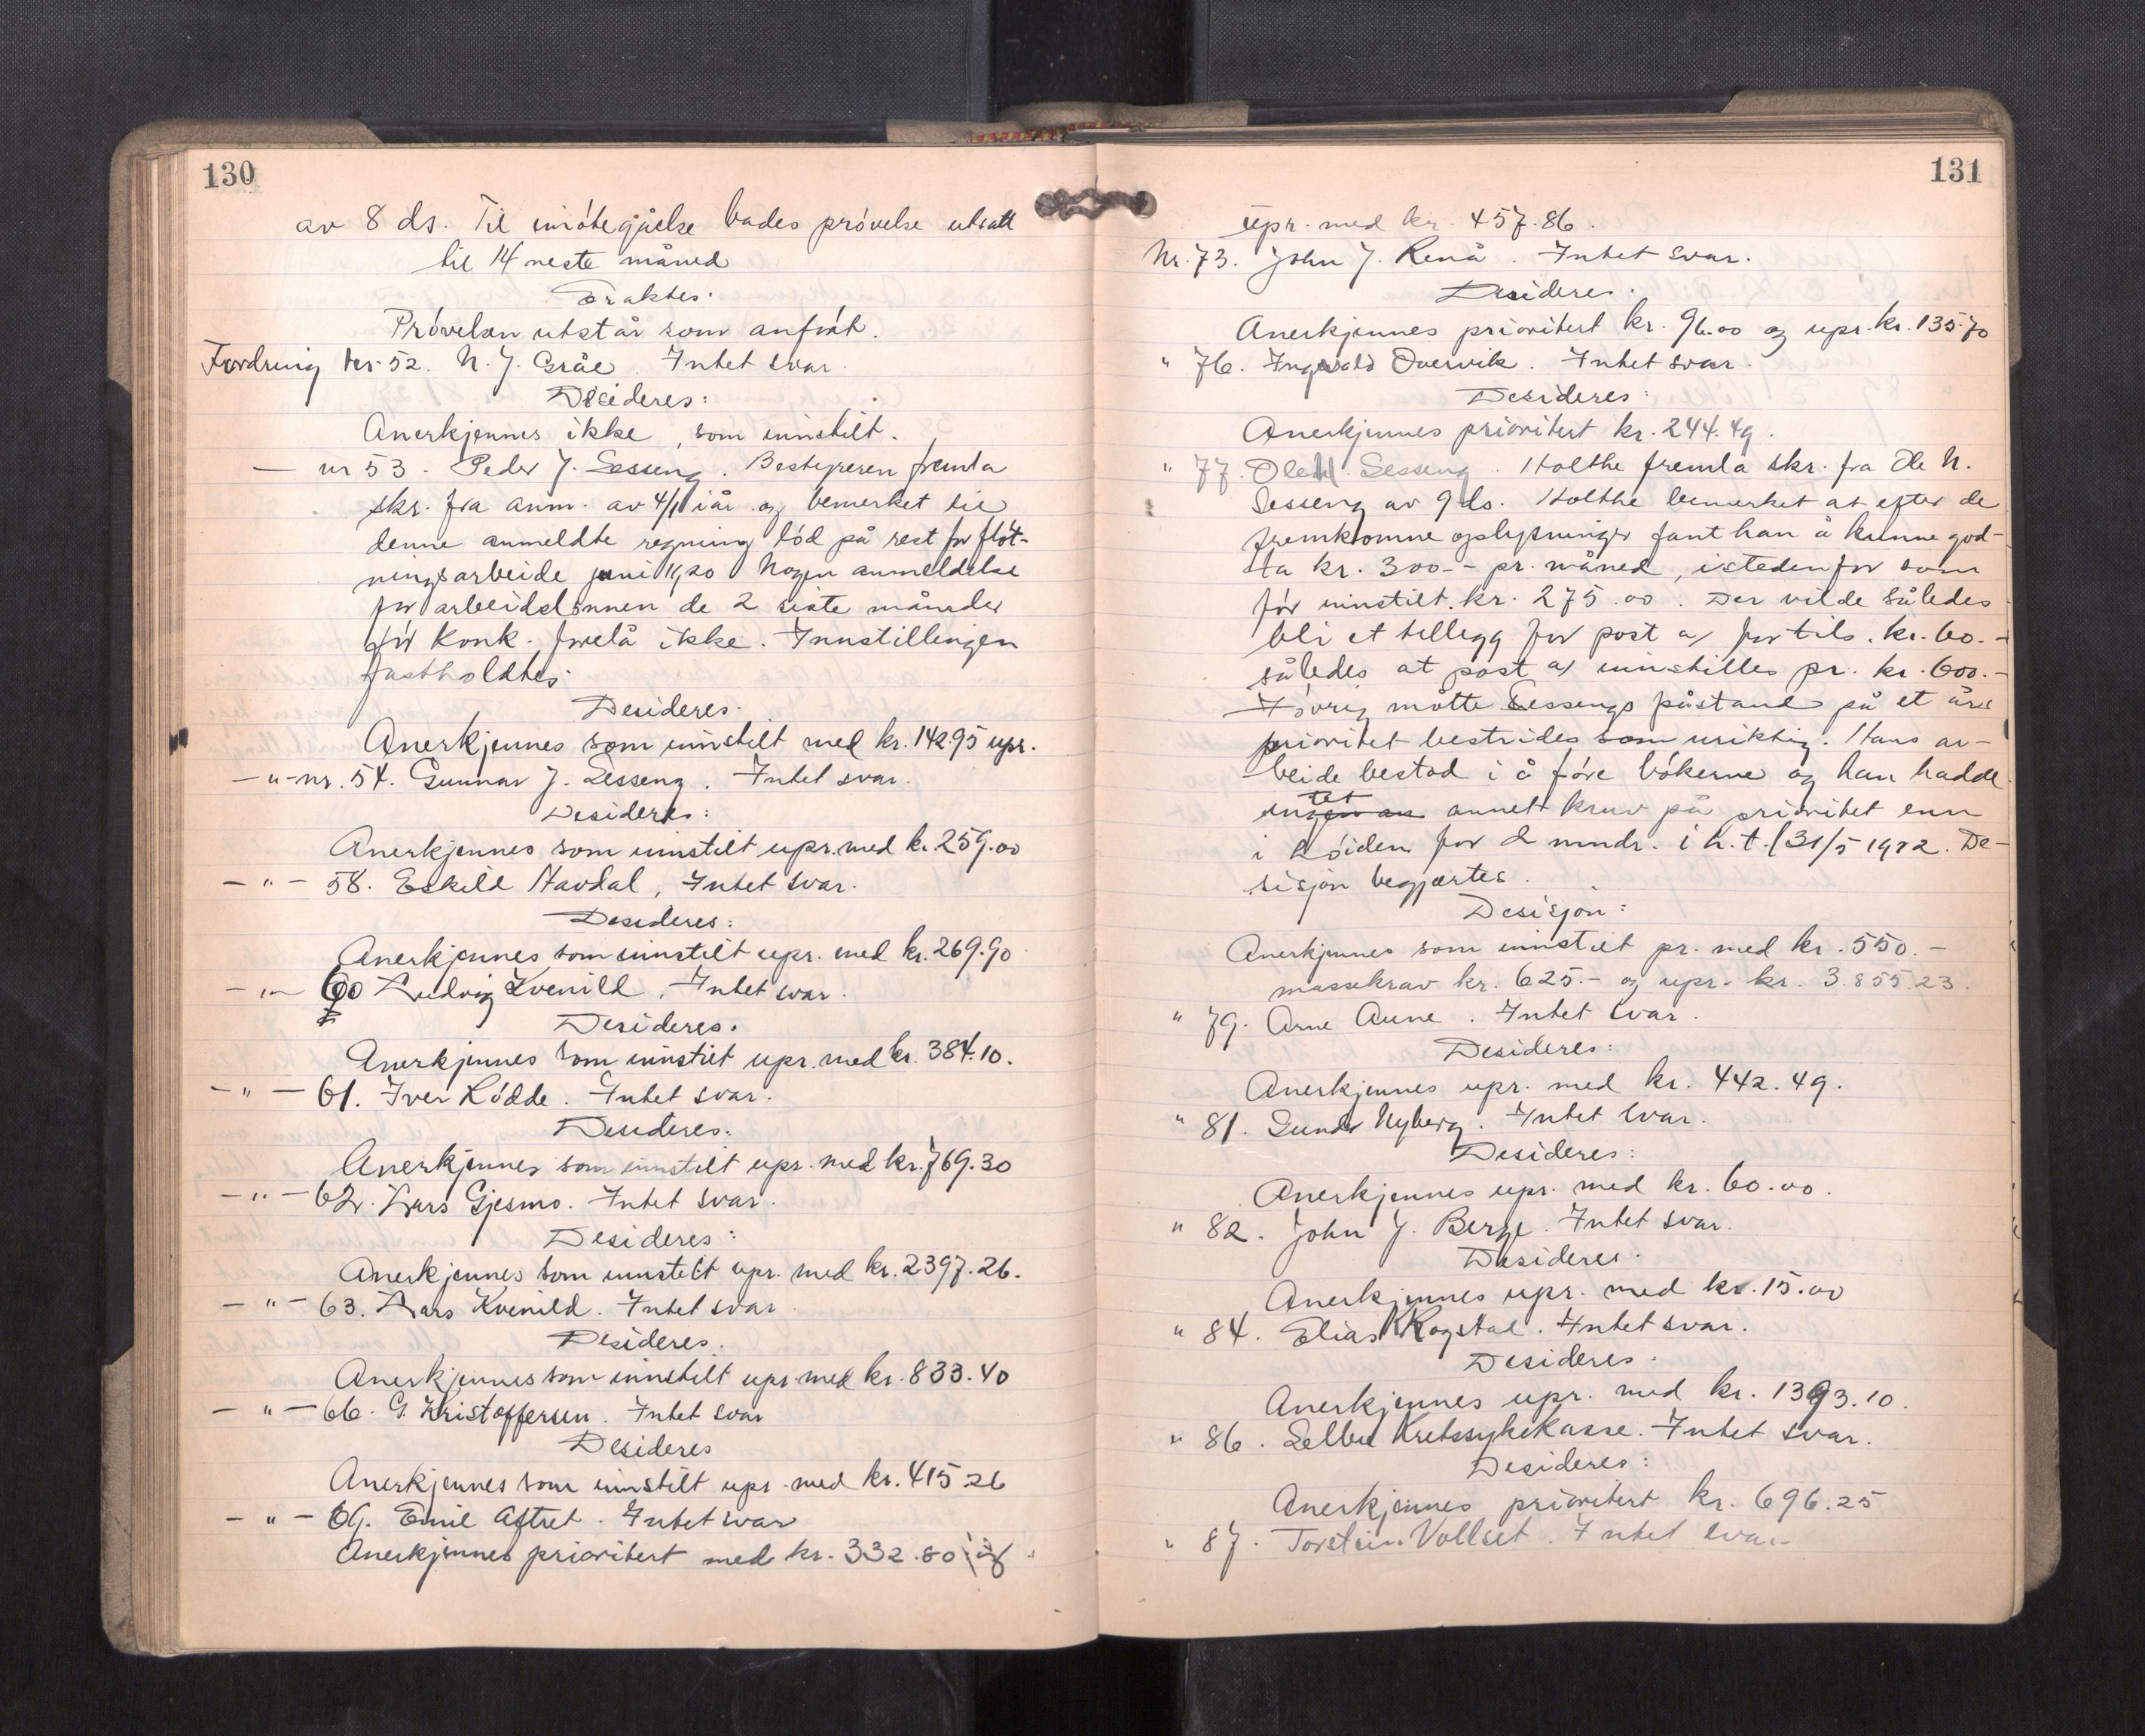 130
av 8 ds. Til imøtegåelse bades prøvelse utsatt
til 14 neste måned
Fraktes:
Prøvelsen utstår som anført.
Fordring nr. 52. N. J. Gråe. Intet svar.
Desideres:
Anerkjennes ikke, som innstilt.
— nr 53. Peder J. Sesseng. Bestyreren fremla
skr. fra anm. av 4/1 i år og bemerket til
denne anmeldte regning lød på rest for fløt-
ningsarbeide juni 1920 Nogen anmeldelse
for arbeide innen de 2 siste måneder
før konk. forelå ikke. Innstillingen
fastholdtes.
Desideres.
Anerkjennes som innstilt med kr. 142.95 upr.
— " - nr. 54. Gunnar J. Sesseng. Intet svar.
Desideres:
Anerkjennes som innstilt upr. med k. 259.00
— " — 58. Eskild Havdal, Intet svar.
Desideres:
Anerkjennes som innstilt upr. med kr. 269.90
— " — 60 Ludvig Kvenild. Intet svar.
Desideres.
Anerkjennes som innstilt upr. med kr. 384.10.
— " — 61. Iver Lødde. Intet svar.
Desideres.
Anerkjennes som innstilt upr. med kr. 769.30
— " — 62. Lars Gjesmo. Intet svar.
Desideres:
Anerkjennes som innstilt upr. med kr. 2397.26.
— " — 63. Lars Kvenild. Intet svar
Desideres.
Anerkjennes som innstilt upr. med kr. 833.40
— " — 66. G. Kristoffersen. Intet svar
Desideres
Anerkjennes som innstilt upr. med kr. 415 26
— " — 69. Emil Aftret. Intet svar
Anerkjennes prioritert med kr. 332.80 og
131
upr. med kr. 457.86.
Nr. 73. John J. Renå. Intet svar.
Desideres.
Anerkjennes prioritert kr. 96.00 og upr. kr. 135.70
" 76. Ingvald Overvik. Intet svar.
Desideres:
Anerkjennes prioritert kr. 244.49.
" 77. Ole N. Sesseng. Holthe fremla skr. fra Ole N.
Sesseng av 9 ds. Holthe bemerket at efter de
fremkomne oplysninger fant han å kunne god-
ta kr. 300.- pr. måned, istedenfor som
før innstilt kr. 275.00. Der vilde således
bli et tillegg for post a) for tils. kr. 60.-
således at post a) innstilles pr. kr. 600.-
Iøvrig måtte Sessengs påstand på et års
prioritet bestrides som uriktig. Hans ar-
beide bestod i å føre bøkerne og han hadde
intet annet krav på prioritet enn
i høiden for 2 mndr. i h.t. l 31/5 1922. De-
sisjon begjærtes.
Desisjon:
Anerkjennes som innstilt pr. med kr. 550.-
massekrav kr. 625.- og upr. kr. 3.855.23.
" 79. Arne Aune. Intet svar.
Desideres:
Anerkjennes upr. med kr. 442.49.
" 81. Gunda Nyberg. Intet svar.
Desideres:
Anerkjennes upr. med kr. 60.00.
" 82. John J. Berge. Intet svar.
Desideres.
Anerkjennes upr. med kr. 15.00
" 84. Elias Rogstad. Intet svar.
Desideres.
Anerkjennes upr. med kr. 1393.10.
" 86. Selbu Kretssykekasse. Intet svar.
Desideres:
Anerkjennes prioritert kr. 696.25
" 87. Torstein Vollset. Intet svar